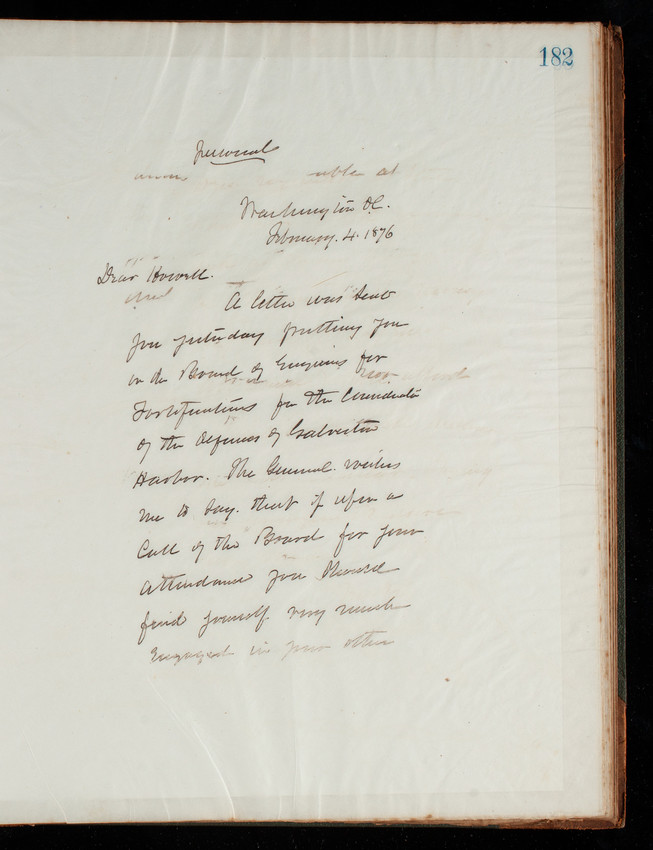 182
Personal
Washington D.C.
February. 4. 1876
Dear Howell.
A letter was sent
you yesterday putting you
on the Board of Engineers for
Fortifications for the Consideration
of the defenses of Galveston
Harbor. The General wishes
me to say that if upon a
Call of the Board for your
attendance you should
find yourself very much
engaged in your other